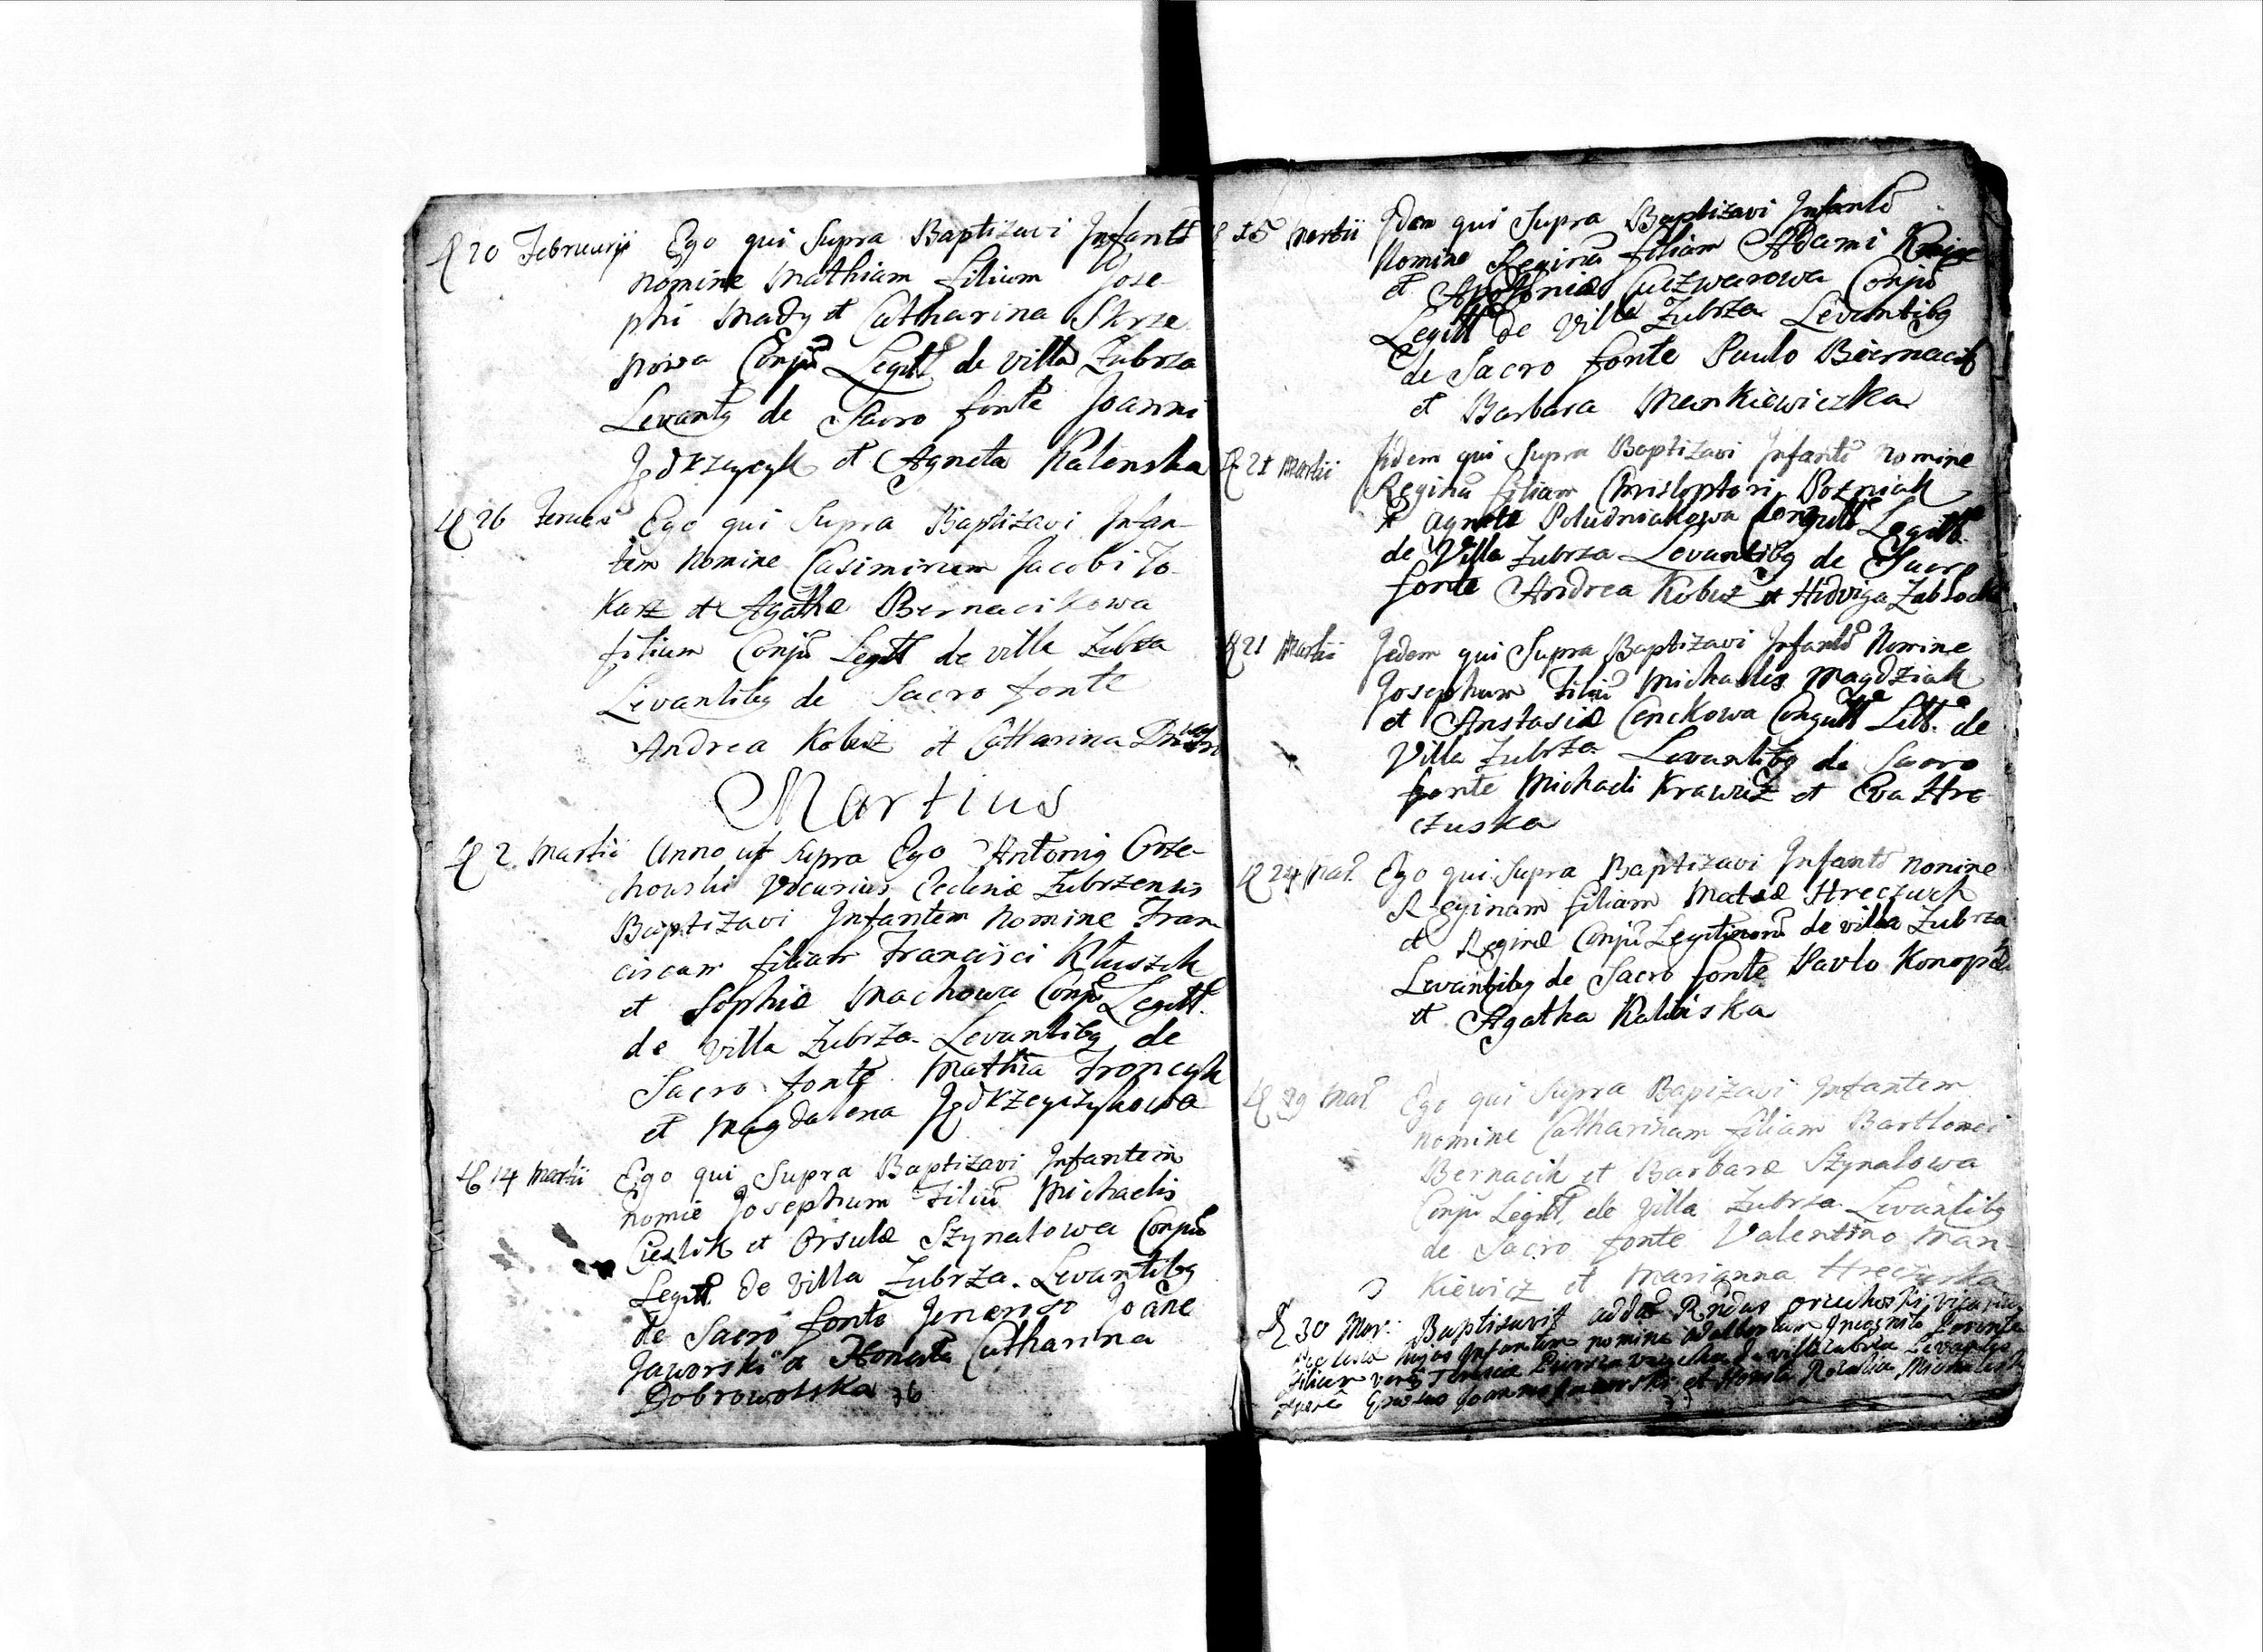 20 Februarii Ego qui Supra Baptizavi Infantē
nomine Mathiam filium Jose-
phi Mady et Catharina Skrze
powa Conjū Legitt de villa Zubrza
Levantq de Sacro fonte Joanni
et Agneta Kalenska
26 Ego qui Supra Baptizavi Infan-
tem Nomine Casimirum Jacobi To-
karz et Agathæ Bernacikowa
filium Conjū Legtt de villa Zubza
Levantibq de Sacro fonte
Andrea Kobuz et Catharina
Martius
2 Martii Anno ut Supra Ego Antoniq Orze-
chowski Vicarius Eccleniæ Zubrzensis
Baptizavi Infantem Nomine Fran
ciscam filiam Francisci Kluszik
et Sophiæ Machowa Conjū Legitt.
de villa Zubrza Levantibq de
Sacro fonte Mathia Froncyk
et Magdalena
14 Martii Ego qui Supra Baptizavi Infantem
nomie Josephum Filiū Michaelis
Cieslik et Orsulæ Szynalowa Conjū
Legitt. de villa Zubrza. Levantibq
de Sacro fonte Jeneroso Joañe
Jaworski et Honesta Catharina
Dobrowolska
15 Martii Idem qui Supra Baptizavi Infantē
Nomine Reginā filiam Adami
et Apoloniæ Conjū
Legitt de Villa Zubrza Levantibq
de Sacro fonte Paulo Biernacik
et Barbara Mankiewiczka
21 Martii Idem qui Supra Baptizavi Infantē Nomine
Reginā filiam Christophori Pozniak
et Agnetæ Poludniakowa Congitt Legitt.
de Villa Zubrza Levantibq de Sacro
fonte Andrea Kobuz et Hedviga Zablocka
21 Martii Idem qui Supra Baptizavi Infantē Nomine
Josephum Filiū Michaelis Magdziak
et Anstasiæ Cenckowa Congutt Litt. de
Villa Zubrza Levantibq de Sacro
fonte Michaeli Krawiez et Eva Hre
czuska
24 Mar. Ego qui Supra Baptizavi Infantē nomine
Reginam filiam Matæ Hreczuch
et Reginæ Conjū Legitimorū de villa Zubrza
Levantibq de Sacro fonte Pavlo
et Agatha Kaliiska
29 Mar. Ego qui Supra Bapizavi Infantem
nomine Catharinam filiam Bartlomei
Bernacik et Barbaræ Szynalowa
Conjū Legitt. de Villa Zubrza Levantibq
de Sacro fonte Valentino Man-
kiewicz et Marianna Hreczuska
30 Mar: Baptisavit
hujus Infantem nomine Adalbertum
de villa Zubrza
et Honesta Rosalia